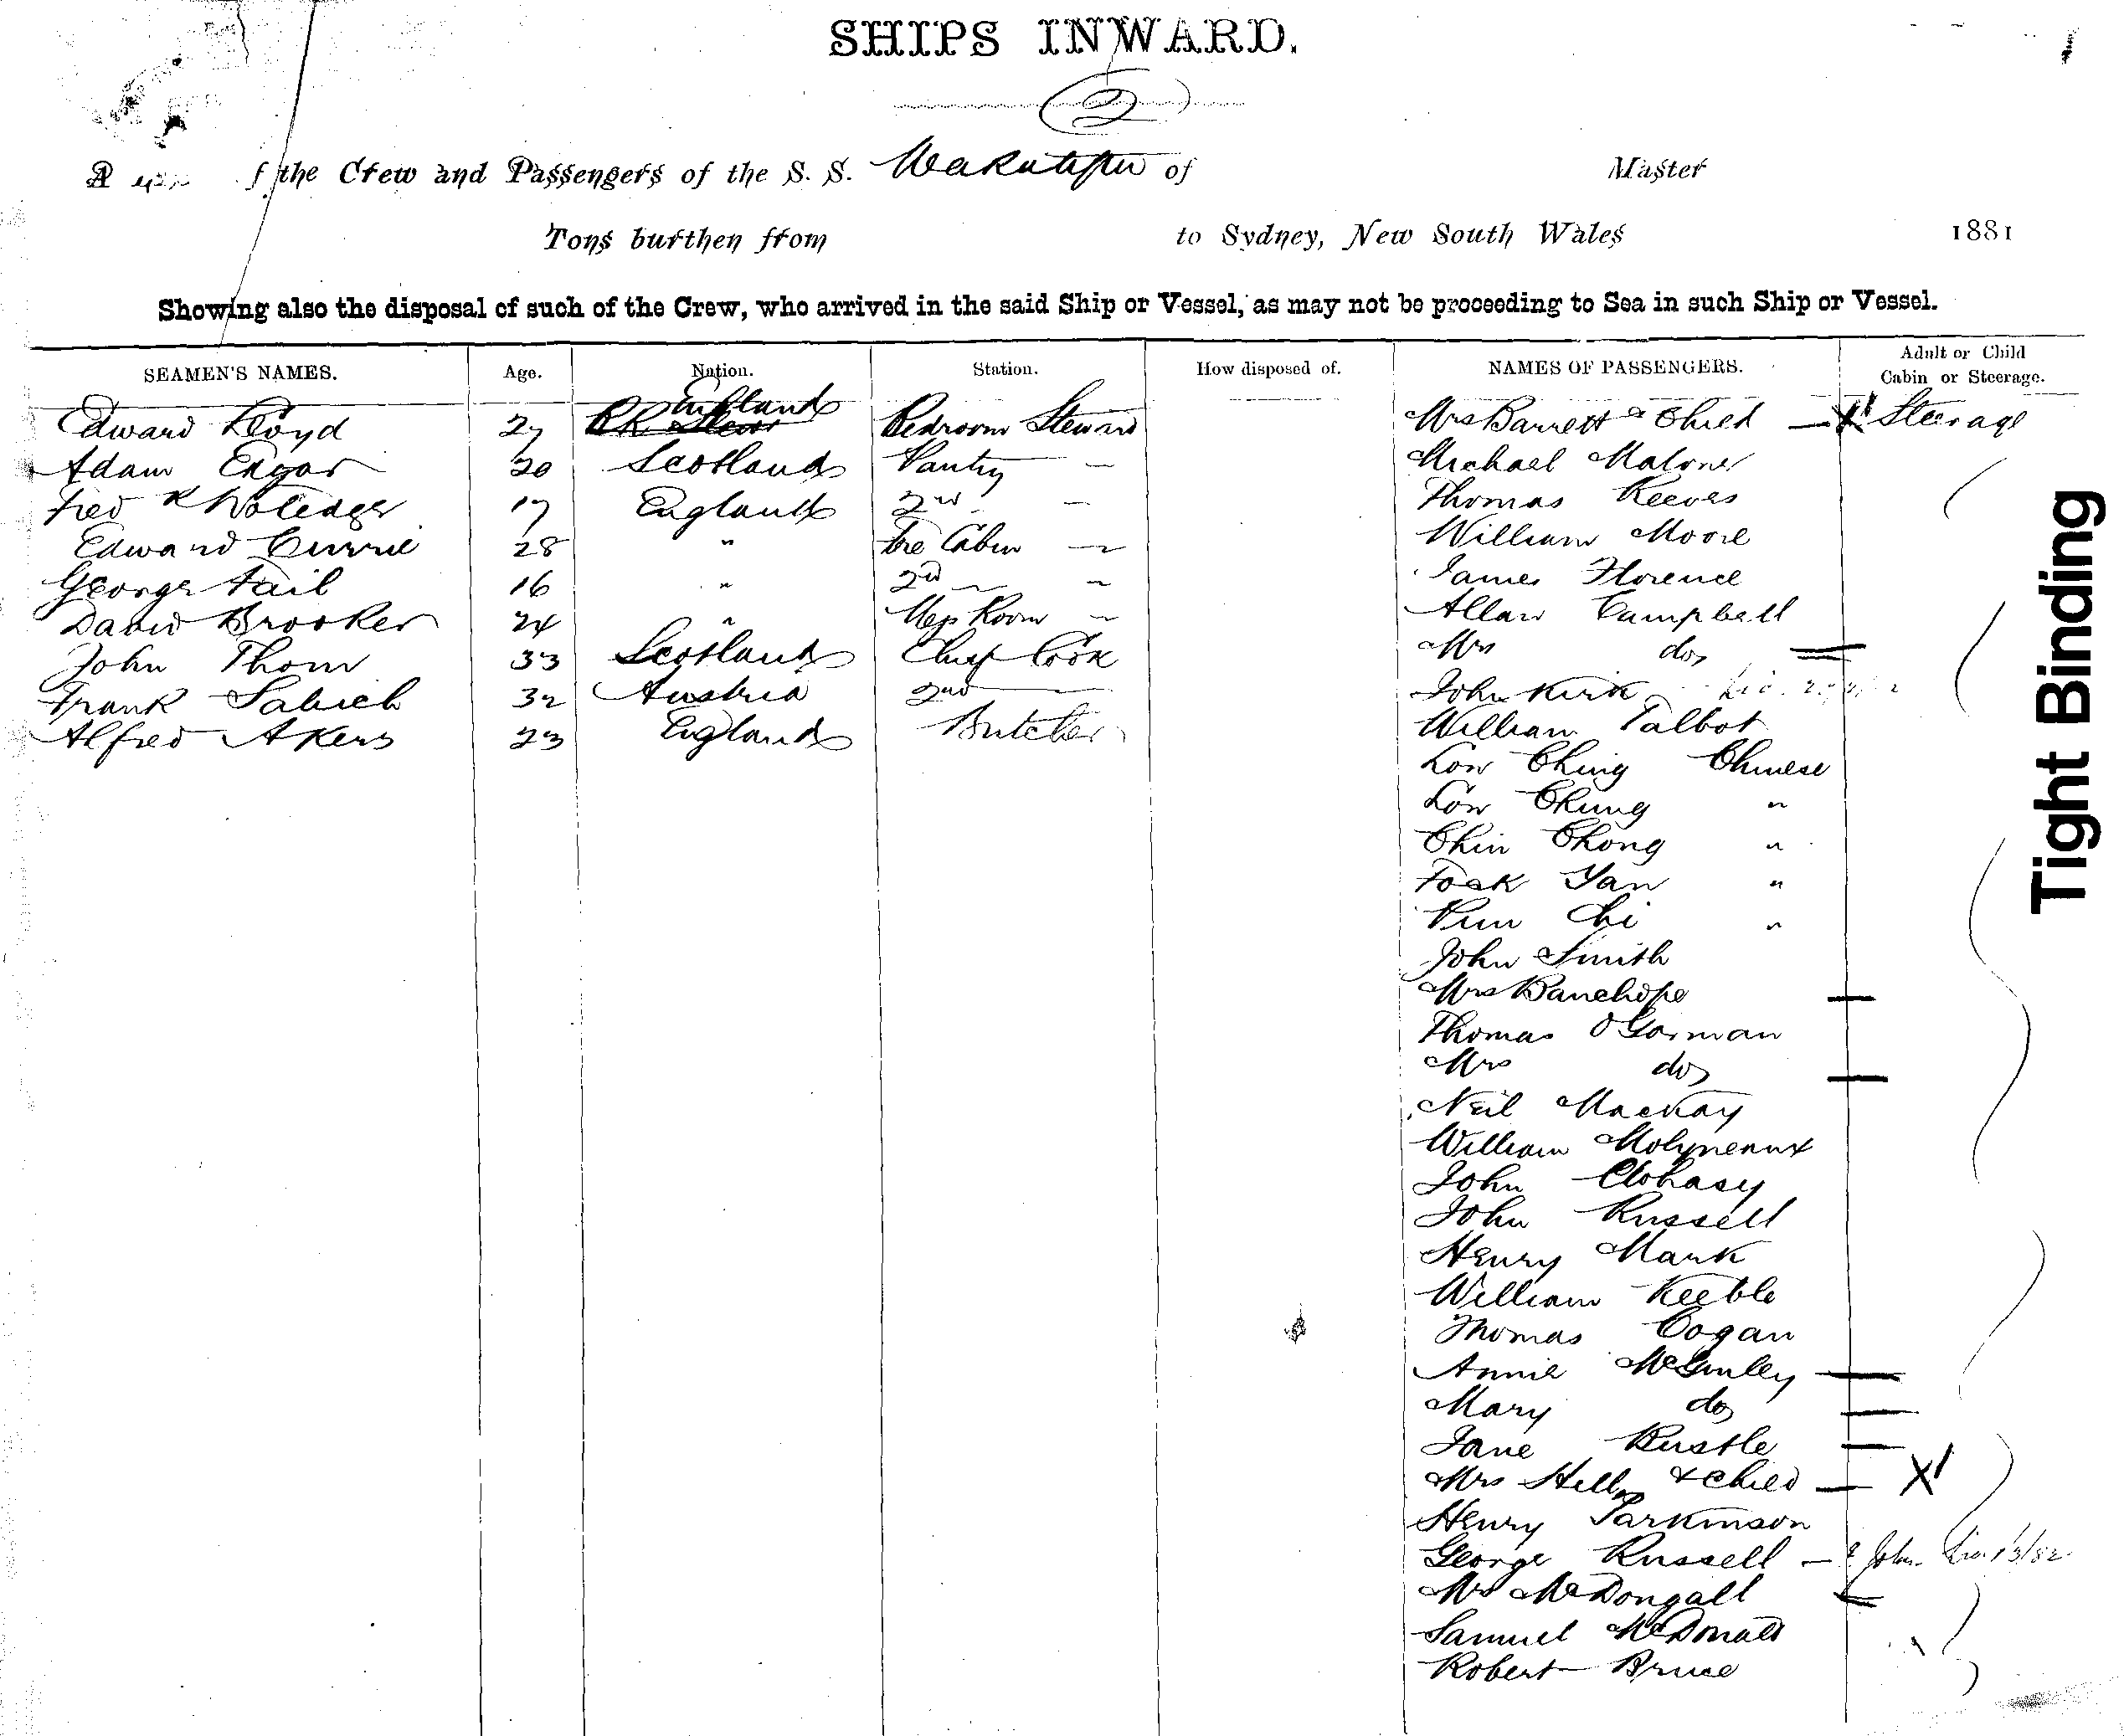 SHIPS INWARD.
2
the Crew and Passengers of the S. S. Wakatipu of Master
Tons burthen from to Sydney, New South Wales 1881
Showing also the disposal of such of the Crew, who arrived in the said Ship or Vessel, as may not be proceeding to Sea in such Ship or Vessel.
SEAMEN'S NAMES. Age. Nation. Station. How disposed of. NAMES OF PASSENGERS. Adult or Child Cabin or Steerage.
Edward Lloyd 27 England Bedroom Steward Mrs Barrett & Child — X1 Steerage
Adam Edgar 20 Scotland Pantry — Michael Malone
Fred K 17 England 2nd — Thomas Reeves
Edward Currie 28 " Fre Cabin — William Moore
George Tail 16 " 2nd — James Florence
David Brooker 24 " Mess Room — Allan Campbell
John Thom 33 Scotland Chief Cook Mrs do
Frank Sabich 32 Austria 2nd — John Kirk
Alfred Akers 23 England Butcher William Talbot
Low Ching Chinese
Low Chung "
Chin Chong "
Fock Yan "
Pun Chi "
John Smith
Mrs Banehope
Thomas O'Gorman
Mrs do
Neil Mackay
William Molyneaux
John Clohasy
John Russell
Henry Mank
William Keeble
Thomas Cogan
Annie McGinley
Mary do
Jane Rustle
Mrs Hill & Child — X1
Henry Parkinson
George Russell — & John. 1/3/82
Mrs McDongall
Samuel McDonald
Robert Bruce
Tight Binding